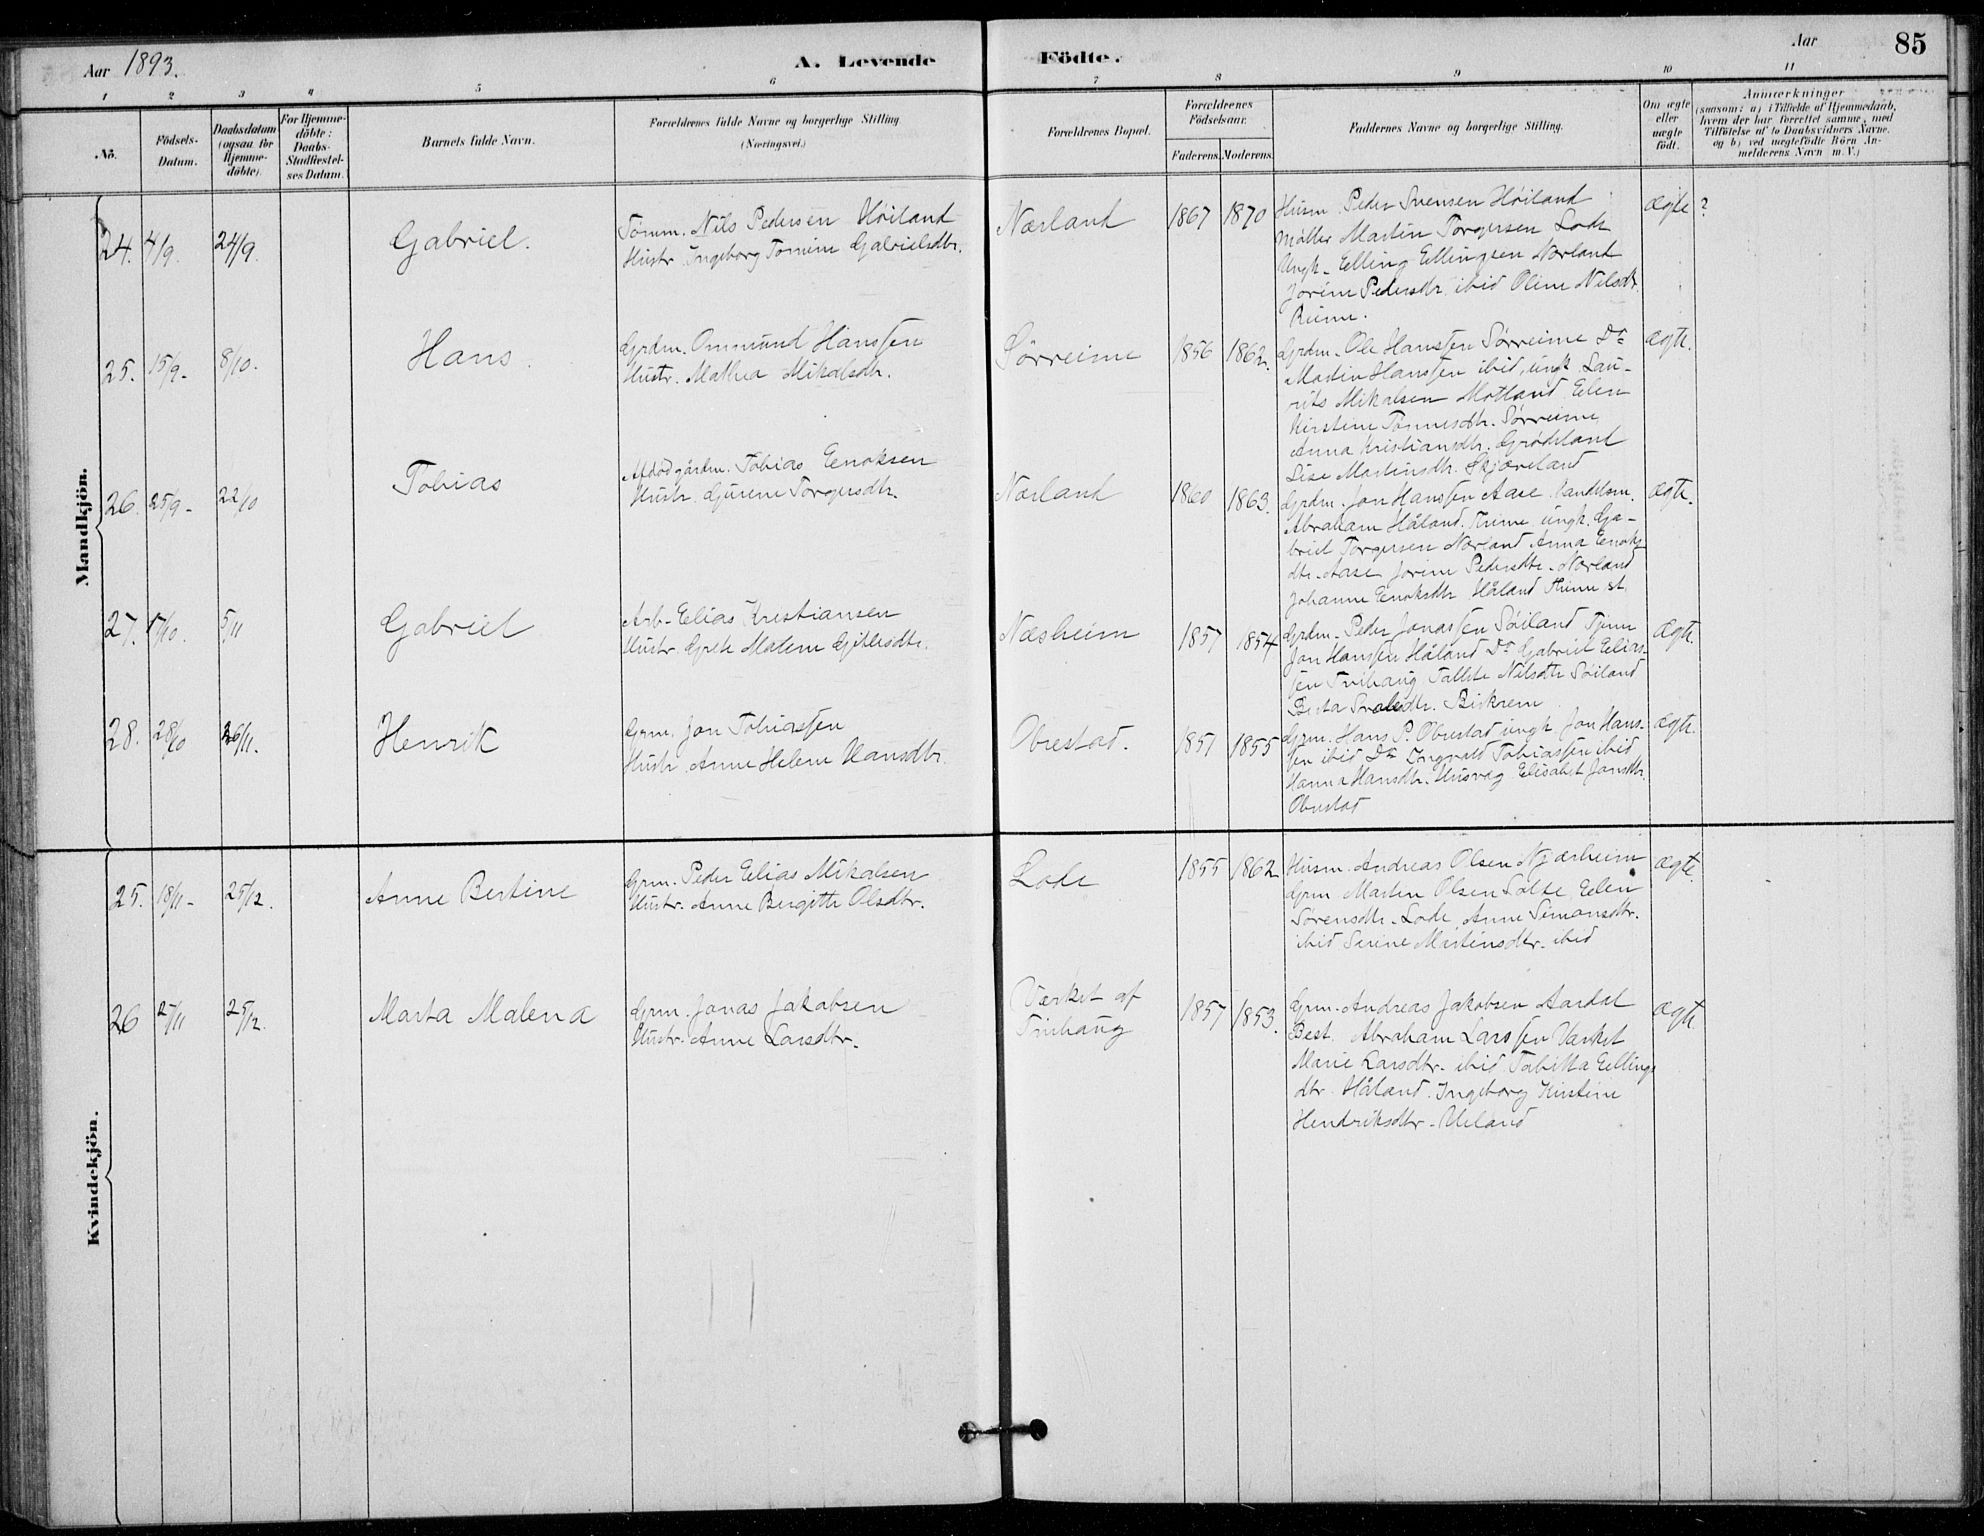 Aar 1893.
A. Levende
Födte.
Aar
85
1
2
3
4
5
6
7
8
9
10
11
Nö.
Födsels-
Datum.
Daabsdatum
(ogsaa for
Hjemme-
döbte).
For Hjemme-
döbte:
Daabs-
Stadfæstel-
ses Datum.
Barnets fulde Navn.
Forældrenes fulde Navne og borgerlige Stilling
(Næringsvei.)
Forældrenes Bopæl.
Forældrenes
Födselsaar.
Faderens.
Moderens.
Faddernes Navne og borgerlige Stilling.
Om ægte
eller
uægte
födt.
Anmærkninger
(saasom: a) i Tilfælde af Hjemmedaab,
hvem der har forrettet samme, med
Tilföielse af to Daabsvidners Navne,
og b) ved uægtefödte Börn An-
melderens Navn m. V.)
Mandkjön.
24. 4/9. 24/9.
Gabriel.
Tömm. Nils Pedersen Höiland
Hustr. Ingeborg Tomine Gabrielsdtr.
Nærland
1867 1870
Husm. Peder Svensen Höiland
Møller Martin Torgersen Lode
Ungk. Elling Ellingsen Nærland
Jorine Pedersdtr. ibid Oline Nilsdtr.
Reime.
Ægte
?
25. 15/9- 8/10.
Hans.
Grdm. Ommund Hanssen
Hustr. Mathea Mikalsdtr.
Sørreime
1856 1862.
Grdm. Ole Hanssen Sørreime Do
Martin Hanssen ibid, ungk. Lau-
rits Mikalsen Motland Elen
Kirstine Tønnesdtr. Sørreime,
Anna Kristiansdtr. Grødeland
Lise Martinsdtr. Skjæreland
Ægte.
26. 25/9- 22/10
Tobias
Afdöd gårdm. Tobias Enoksen
Hustr. Gurine Torgersdtr.
Nærland
1860 1863.
Grdm. Jon Hanssen Aase Handelsm.
Abraham Håland. Thime ungk. Ga-
briel Torgersen Nærland Anna Enoks
dtr. Aase Jorine Pedersdtr. Nærland
Johanne Enoksdtr Håland Thime st.
Ægte.
27. /10. 5/11
Gabriel
Arb. Elias Kristiansen
Hustr. Grete Malene Gitlesdtr.
Næsheim
1857 1854
Grdm. Peder Jonassen Söiland Tjener
Jon Hanssen Håland Do Gabriel Elias-
sen Tvihaug Tallete Nilsdtr Söiland
Berta dtr. Birkrem
Ægte.
28. 28/10 26/11.
Henrik
Grm. Jon Tobiassen
Hustr. Anne Helene Hansdtr.
Obrestad.
1851 1855
Grm. Hans P. Obrestad ungk. Jon Hans-
sen ibid Do Ingvald Tobiassen ibid
Hanna Hansdtr. Husvæg Elisabet Jonsdtr.
Obrestad
Ægte.
Kvindekjön.
25. 18/11- 25/12.
Anne Bertine
Grm. Peder Elias Mikalsen
Hustr. Anne Birgitte Olsdtr.
Lode
1855 1862
Husm. Andreas Olsen Njærheim
Grm Martin Olsen Salte, Elen
Sørensdtr. Lode, Anne Simonsdtr.
ibid Serine Martinsdtr. ibid
Ægte.
26 25/11 25/12.
Marta Malena
Grm. Jonas Jakobsen
Hustr. Anne Larsdtr.
Værket af
Tvihaug
1857 1853.
Grm. Andreas Jakobsen Aardal
Best. Abraham Larssen Værket
Marie Larsdtr. ibid Tabitta Ellings
dtr. Håland. Ingeborg Kirstine
Hendriksdtr. Ueland
Ægte